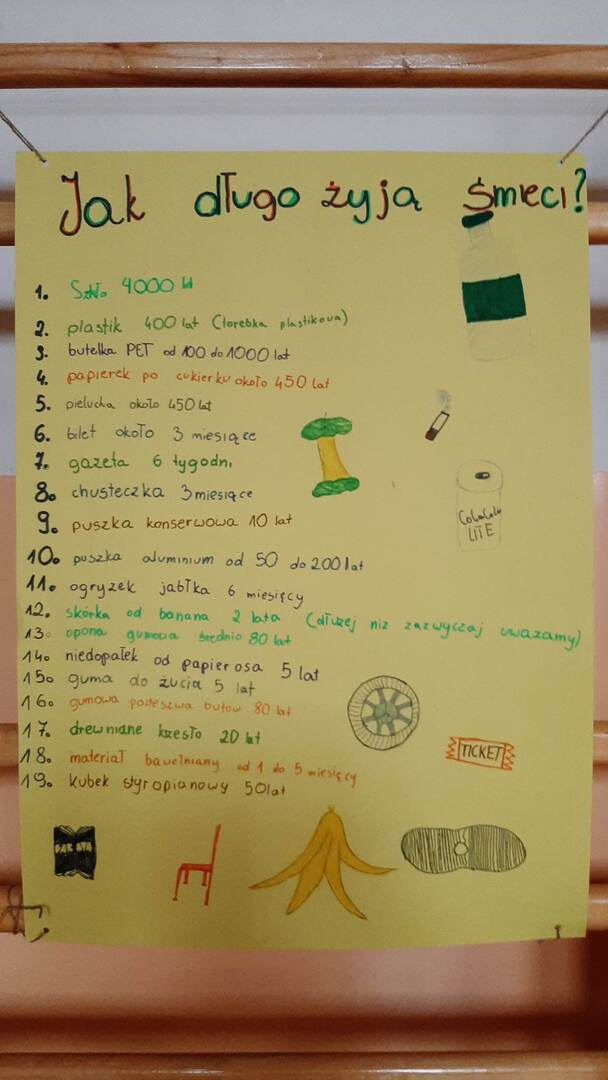 Jak długo żyją śmieci?
1. Szkło 4000 lat
2. plastik 400 lat (torebka plastikowa)
3. butelka PET od 100 do 1000 lat
4. papierek po cukierku około 450 lat
5. pielucha około 450 lat
6. bilet około 3 miesiące
7. gazeta 6 tygodni
8. chusteczka 3 miesiące
9. puszka konserwowa 10 lat
10. puszka aluminium od 50 do 200 lat
11. ogryzek jabłka 6 miesięcy
12. skórka od banana 2 lata (dłużej niż zazwyczaj uważamy)
13. opona gumowa średnio 80 lat
14. niedopałek od papierosa 5 lat
15. guma do żucia 5 lat
16. gumowa podeszwa butów 80 lat
17. drewniane krzesło 20 lat
18. materiał bawełniany od 1 do 5 miesięcy
19. kubek styropianowy 50 lat
LITE
TICKET